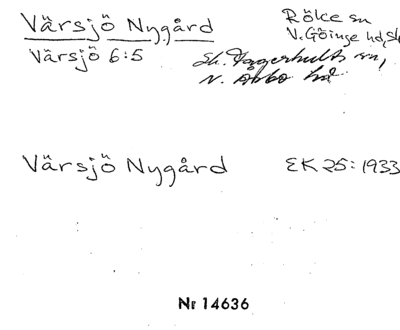 Värsjö Nygård
Värsjö 6:5
Röke sn
V. Göinge hd, Sk
Sk. Fagerhults sn,
N. Åsbo hd.
Värsjö Nygård EK 25: 1933
Nr 14636